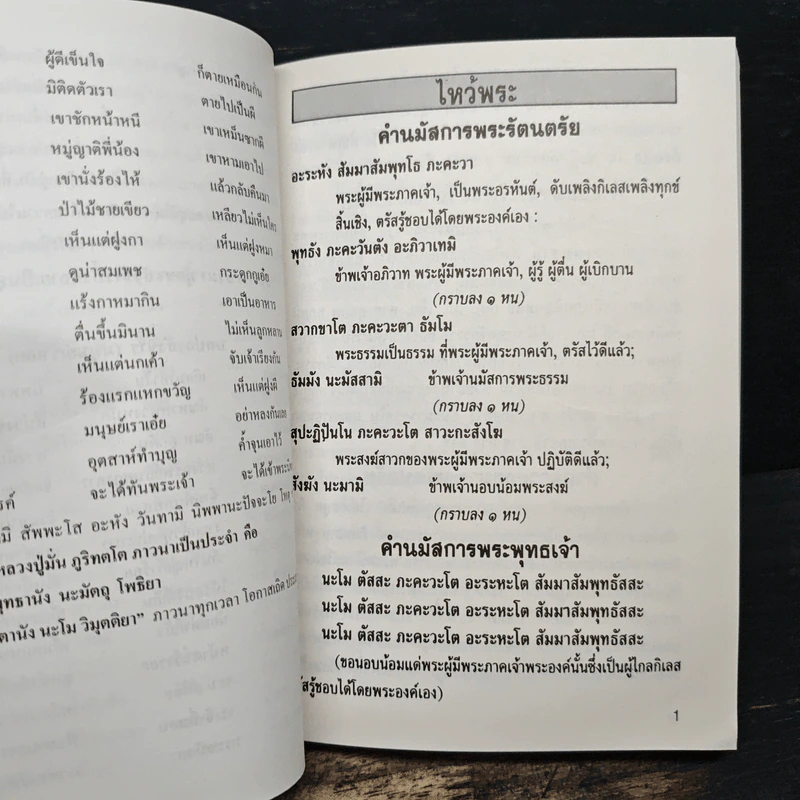 ผู้ดีเข็นใจ ก็ตายเหมือนกัน
มิติดตัวเรา ตายไปเป็นผี
เขาชักหน้าหนี เขาเหม็นซากผี
หมู่ญาติพี่น้อง เขาหามเอาไป
เขานั่งร้องไห้ แล้วกลับคืนมา
ป่าไม้ชายเขียว เหลียวไม่เห็นใคร
เห็นแต่ฝูงกา เห็นแต่ฝูงหมา
ดูน่าสมเพช กระดูกกูเอ๋ย
แร้งกาหมากิน เอาเป็นอาหาร
ตื่นขึ้นมินาน ไม่เห็นลูกหลาน
เห็นแต่นกเค้า จับเจ้าเรียงกัน
ร้องแรกแหกขวัญ เห็นแต่ฝูงผี
มนุษย์เราเอ๋ย อย่าหลงกันเลย
อุตสาห์ทำบุญ ค้ำจุนเอาไว้
จะได้ทันพระเจ้า
สัพพะโส อะหัง วันทามิ นิพพานะปัจจะโย
หลวงปู่มั่น ภูริทตโต ภาวนาเป็นประจำ คือ
นะมัตถุ โพธิยา
นะโม วิมุตติยา" ภาวนาทุกเวลา โอกาสเถิด
ไหว้พระ
คำนมัสการพระรัตนตรัย
อะระหัง สัมมาสัมพุทโธ ภะคะวา
พระผู้มีพระภาคเจ้า, เป็นพระอรหันต์, ดับเพลิงกิเลสเพลิงทุกข์
สิ้นเชิง, ตรัสรู้ชอบได้โดยพระองค์เอง :
พุทธัง ภะคะวันตัง อะภิวาเทมิ
ข้าพเจ้าอภิวาท พระผู้มีพระภาคเจ้า, ผู้รู้ ผู้ตื่น ผู้เบิกบาน
(กราบลง ๑ หน)
สวากขาโต ภะคะวะตา ธัมโม
พระธรรมเป็นธรรม ที่พระผู้มีพระภาคเจ้า, ตรัสไว้ดีแล้ว;
ธัมมัง นะมัสสามิ ข้าพเจ้านมัสการพระธรรม
(กราบลง ๑ หน)
สุปะฏิปันโน ภะคะวะโต สาวะกะสังโฆ
พระสงฆ์สาวกของพระผู้มีพระภาคเจ้า ปฏิบัติดีแล้ว;
สังฆัง นะมามิ ข้าพเจ้านอบน้อมพระสงฆ์
(กราบลง ๑ หน)
คำนมัสการพระพุทธเจ้า
นะโม ตัสสะ ภะคะวะโต อะระหะโต สัมมาสัมพุทธัสสะ
นะโม ตัสสะ ภะคะวะโต อะระหะโต สัมมาสัมพุทธัสสะ
นะโม ตัสสะ ภะคะวะโต อะระหะโต สัมมาสัมพุทธัสสะ
(ขอนอบน้อมแด่พระผู้มีพระภาคเจ้าพระองค์นั้นซึ่งเป็นผู้ไกลกิเลส
ตรัสรู้ชอบได้โดยพระองค์เอง)
1